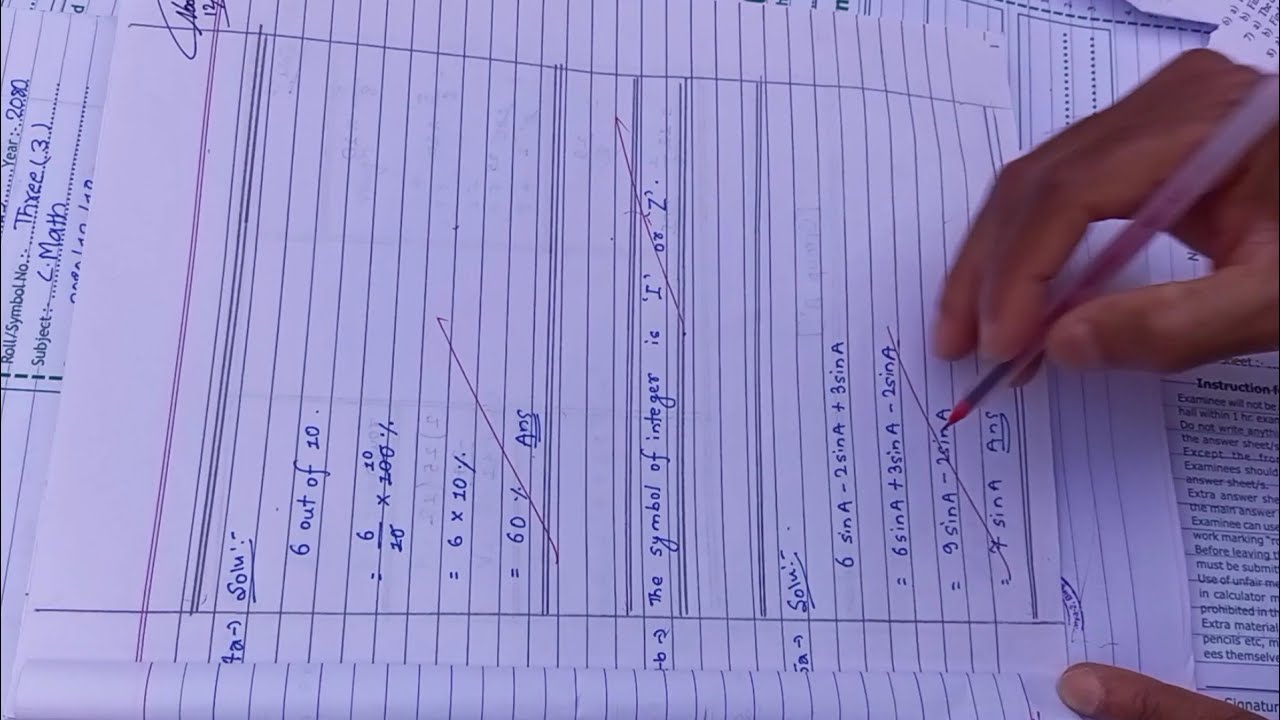 Year:- 2080
Roll/Symbol.No.:- Three(3)
Subject:- C.Math
4a→ Solu:-
6 out of 10.
= 6/10 × 100% 10
= 6 × 10%
= 60 % Ans
b→ The symbol of integer is 'I' or 'Z'.
5a→ Solu:-
6 sinA - 2sinA + 3sinA
= 6sinA + 3sinA - 2sinA
= 9sinA - 2sinA
= 7 sinA Ans
Instruction
Examinee will not be
hall within 1 hr. exa
Do not write anyth
the answer sheet/s
Except the fro
Examinees should
answer sheet/s.
Extra answer she
the main answer
Examinee can use
work marking "ro
Before leaving t
must be submit
Use of unfair me
in calculator m
prohibited in th
Extra material
pencils etc, m
ees themselve
Signatur